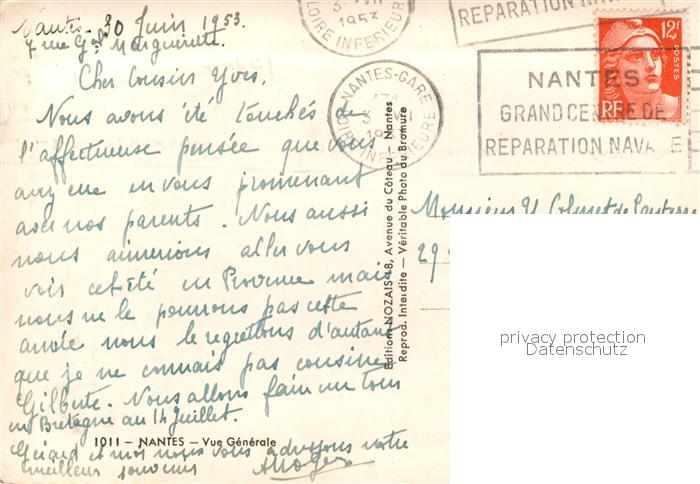 Nantes 30 Juin 1953.
7 rue Gal Margueritte
Cher Cousin Yves,
Nous avons été touchés de
l'affectueuse pensée que vous
avez eue en vous promenant
avec nos parents. Nous aussi
nous aimerions aller vous
voir cet été en Provence mais
nous ne le pourrons pas cette
année nous le regrettons d'autant
que je ne connais pas cousine
Gilberte. Nous allons faire un tour
en Bretagne au 14 Juillet.
1011 – NANTES – Vue Générale
Gérard et moi nous vous adressons notre
meilleur souvenir
LOIRE INFERIEURE
1953
REPARATION NAVALE
NANTES-GARE
LOIRE INFERIEURE
NANTES
GRAND CENTRE DE
REPARATION NAVALE
12F
POSTES
RF
Editions NOZAIS 48, Avenue du Côteau – Nantes
Reprod. Interdite – Véritable Photo au Bromure
Monsieur Y. Colmet de
29
privacy protection
Datenschutz